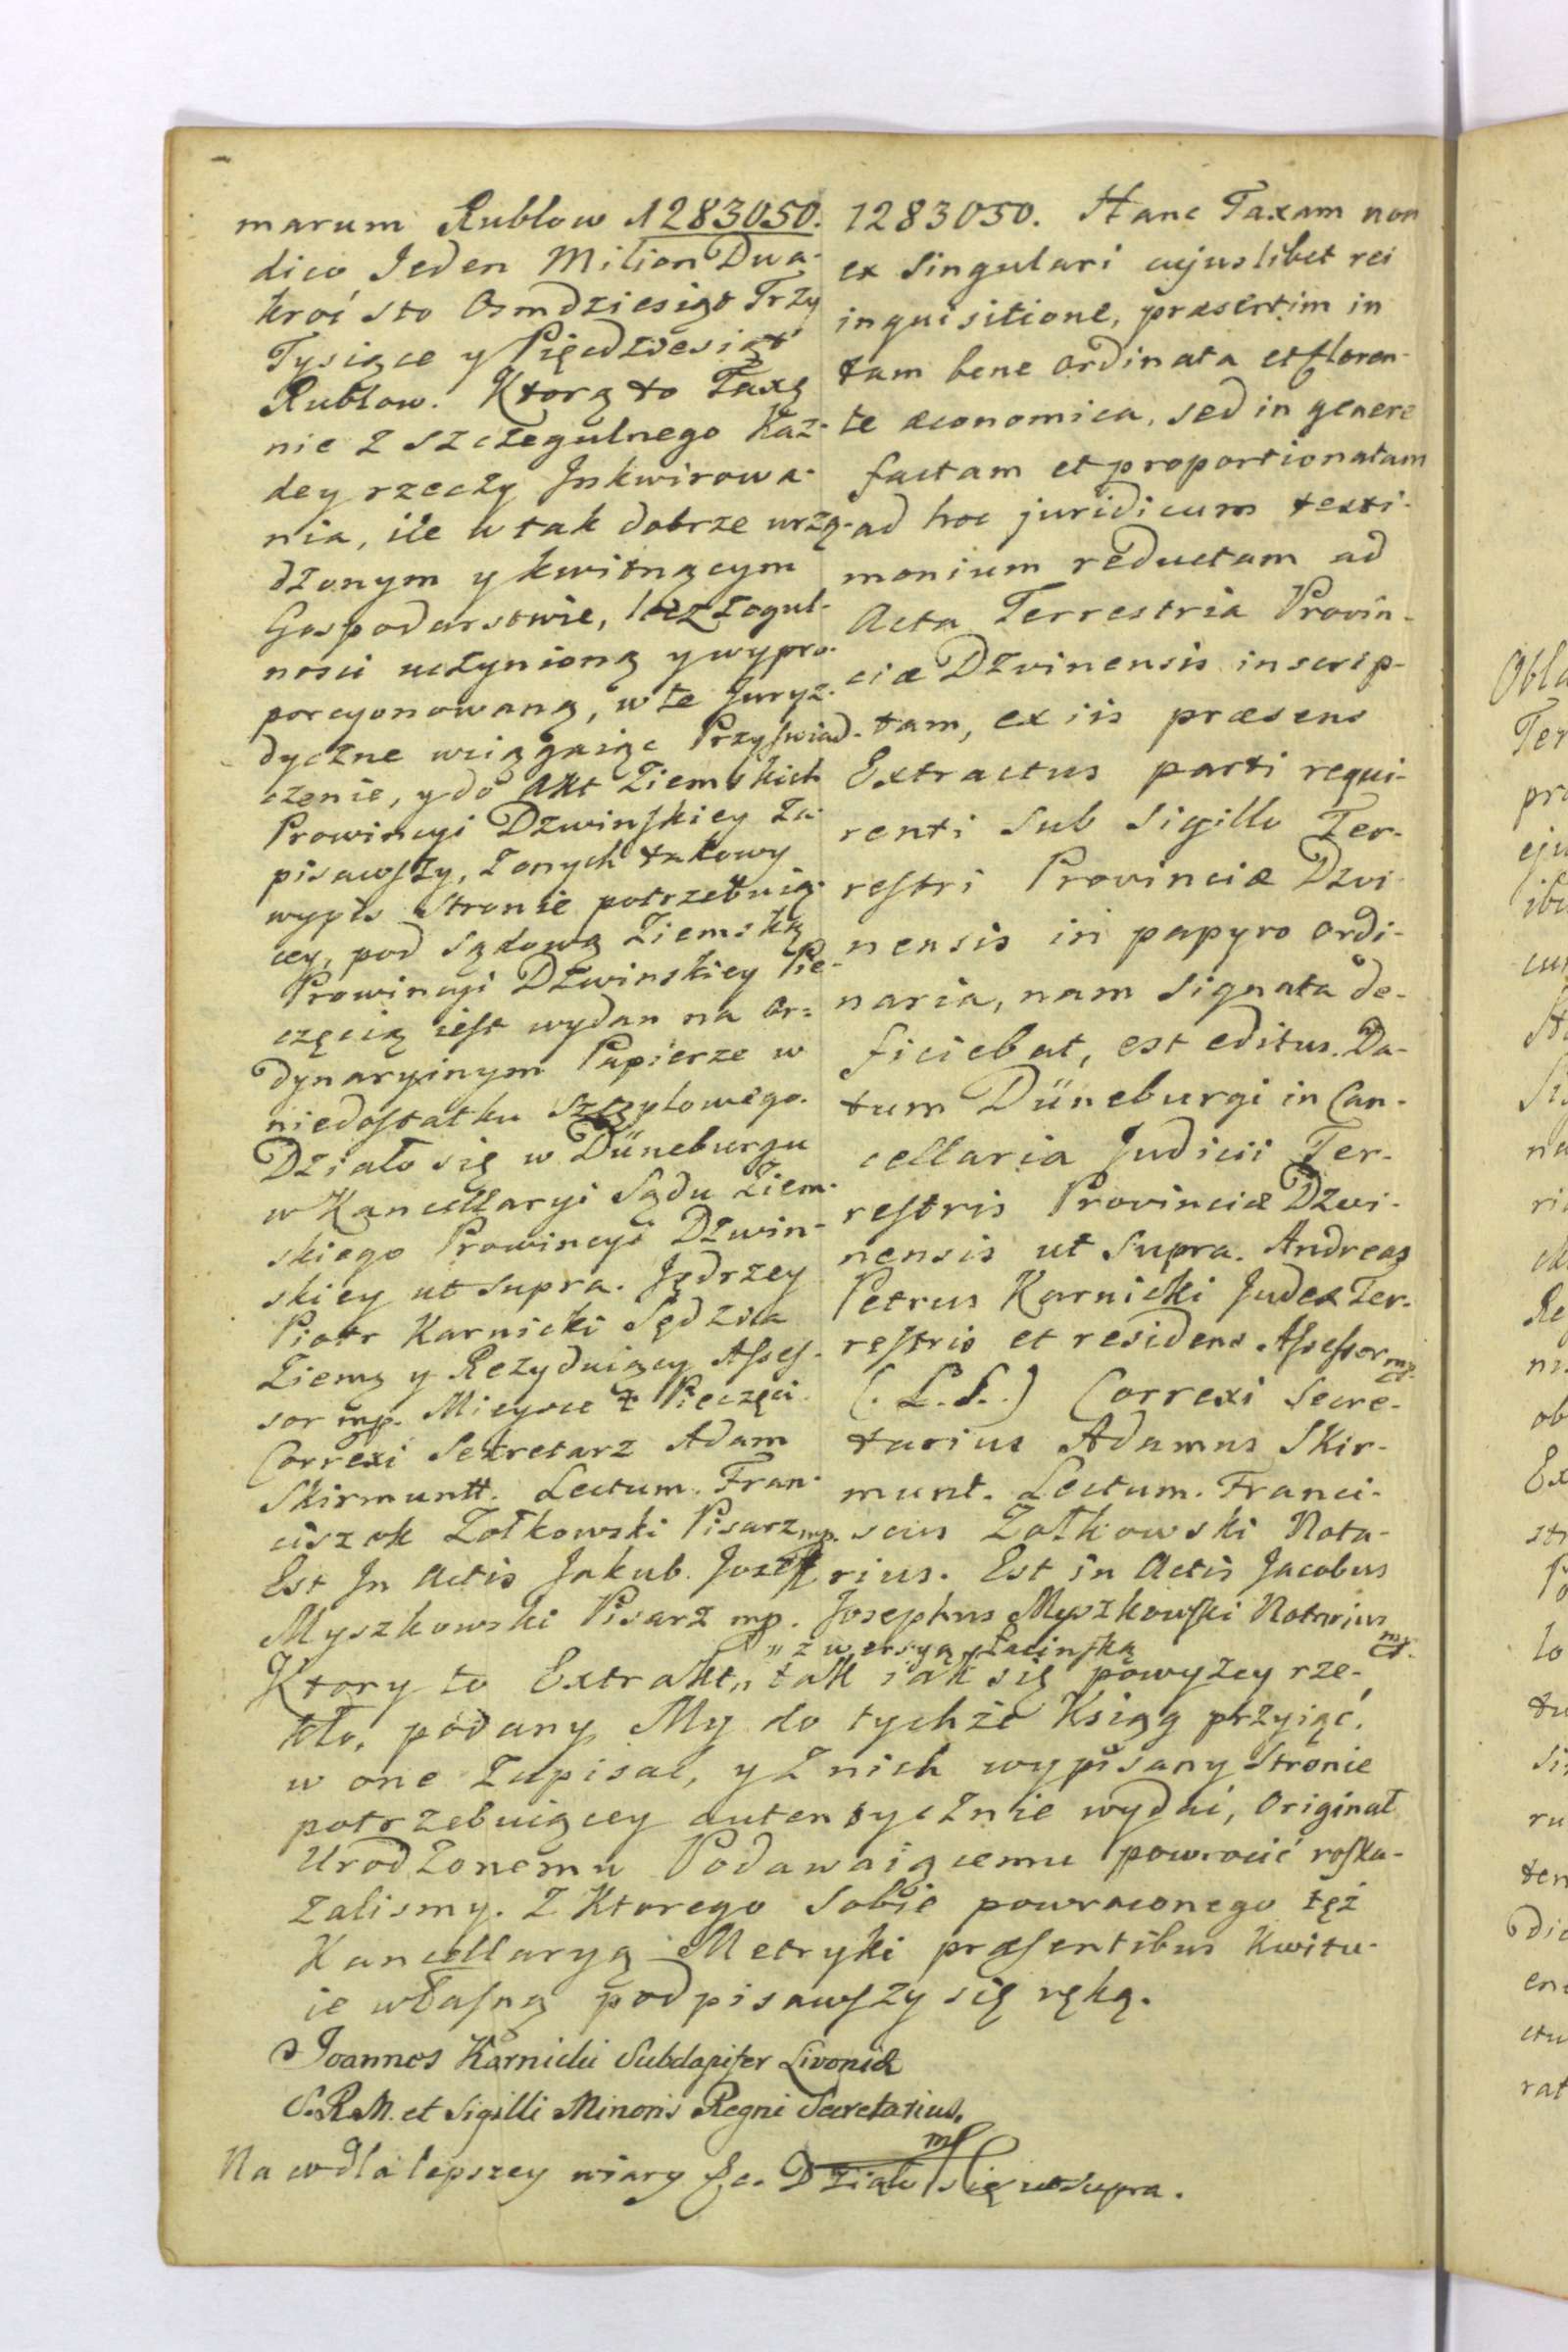 marum Rublow 1283050.
dico Jeden Milion Dwa-
kroć sto Osmdziesiąt Trzy
Tysiące y Pięcdziesiąt
Rublow. Ktorą to Taxę
nie z szczegulnego każ-
dey rzeczy Inkwirowa-
nia, ile w tak dobrze urzą-
dzonym y kwitnącym
Gospodarstwie, lecz z ogul-
nosci uczynioną y wypro-
porcyonowaną, w te Juryz-
dyczne wciągaiąc Przyświad-
czenie, y do Akt Ziemskich
Prowincyi Dzwinskiey Za-
pisawszy, z onych takowy
wypis stronie potrzebuią-
cey, pod Sądową Ziemską
Prowincyi Dzwinskiey Pie-
częcią iest wydan na Or=
dynaryinym Papierze w
niedostatku Sztęplowego.
Działo się w Düneburgu
w Kancellaryi Sądu Ziem-
skiego Prowincyi Dzwin-
skiey ut supra. Jędrzey
Piotr Karnicki Sędzia
Ziemę y Rezyduiący Asses-
sor mp. Mieysce ✝ Pieczęci
Correxi Sekretarz Adam
Skirmuntt. Lectum. Fran-
ciszek Zołkowski Pisarz mp.
Est In Actis Jakub. Jozef
Myszkowski Pisarz mp.
1283050. Hanc Taxam non
ex Singulari cujuslibet rei
inquisitione, præsertim in
tam bene ordinata et floren-
te œconomica, sed in genere
factam et proportionatam
ad hoc juridicum testi-
monium reductam ad
Acta Terrestria Provin-
ciæ Dzvinensis inscrip-
tam, ex iis præsens
Extractus parti requi-
renti sub sigillo Ter-
restri Provinciæ Dzvi-
nensis in papyro ordi-
naria, nam signata de-
ficiebat, est editus. Da-
tum Düneburgi in Can-
cellaria Judicii Ter-
restris Provinciæ Dzvi-
nensis ut supra. Andreas
Petrus Karnicki Judex Ter-
restris et residens Assessor mp.
(. L.S. .) Correxi Secre-
tarius Adamus Skir-
munt. Lectum. Franci-
scus Zołkowski Nota-
rius. Est in Actis Jacobus
Josephus Myszkowski Notarius mp.
„ z wersyą Łacinską
Ktory to Extrakt„ tak iak się powyżey rze-
kło, podany My do tychże Ksiąg przyiąć,
w one Zapisać, y z nich wypisany Stronie
potrzebuiącey autentycznie wydać, Originał
Urodzonemu Podawaiącemu powrocić roska-
zalismy. Z Ktorego Sobie powroconego też
Kancellaryą Metryki præsentibus Kwitu-
ie własną podpisawszy się ręką.
Joannes Karnicki Subdapifer Livoniæ
S.R.M. et Sigilli Minoris Regni Secretarius.
mp
Na co dla lepszey wiary &c. Działo się ut supra.
Obla
Ter